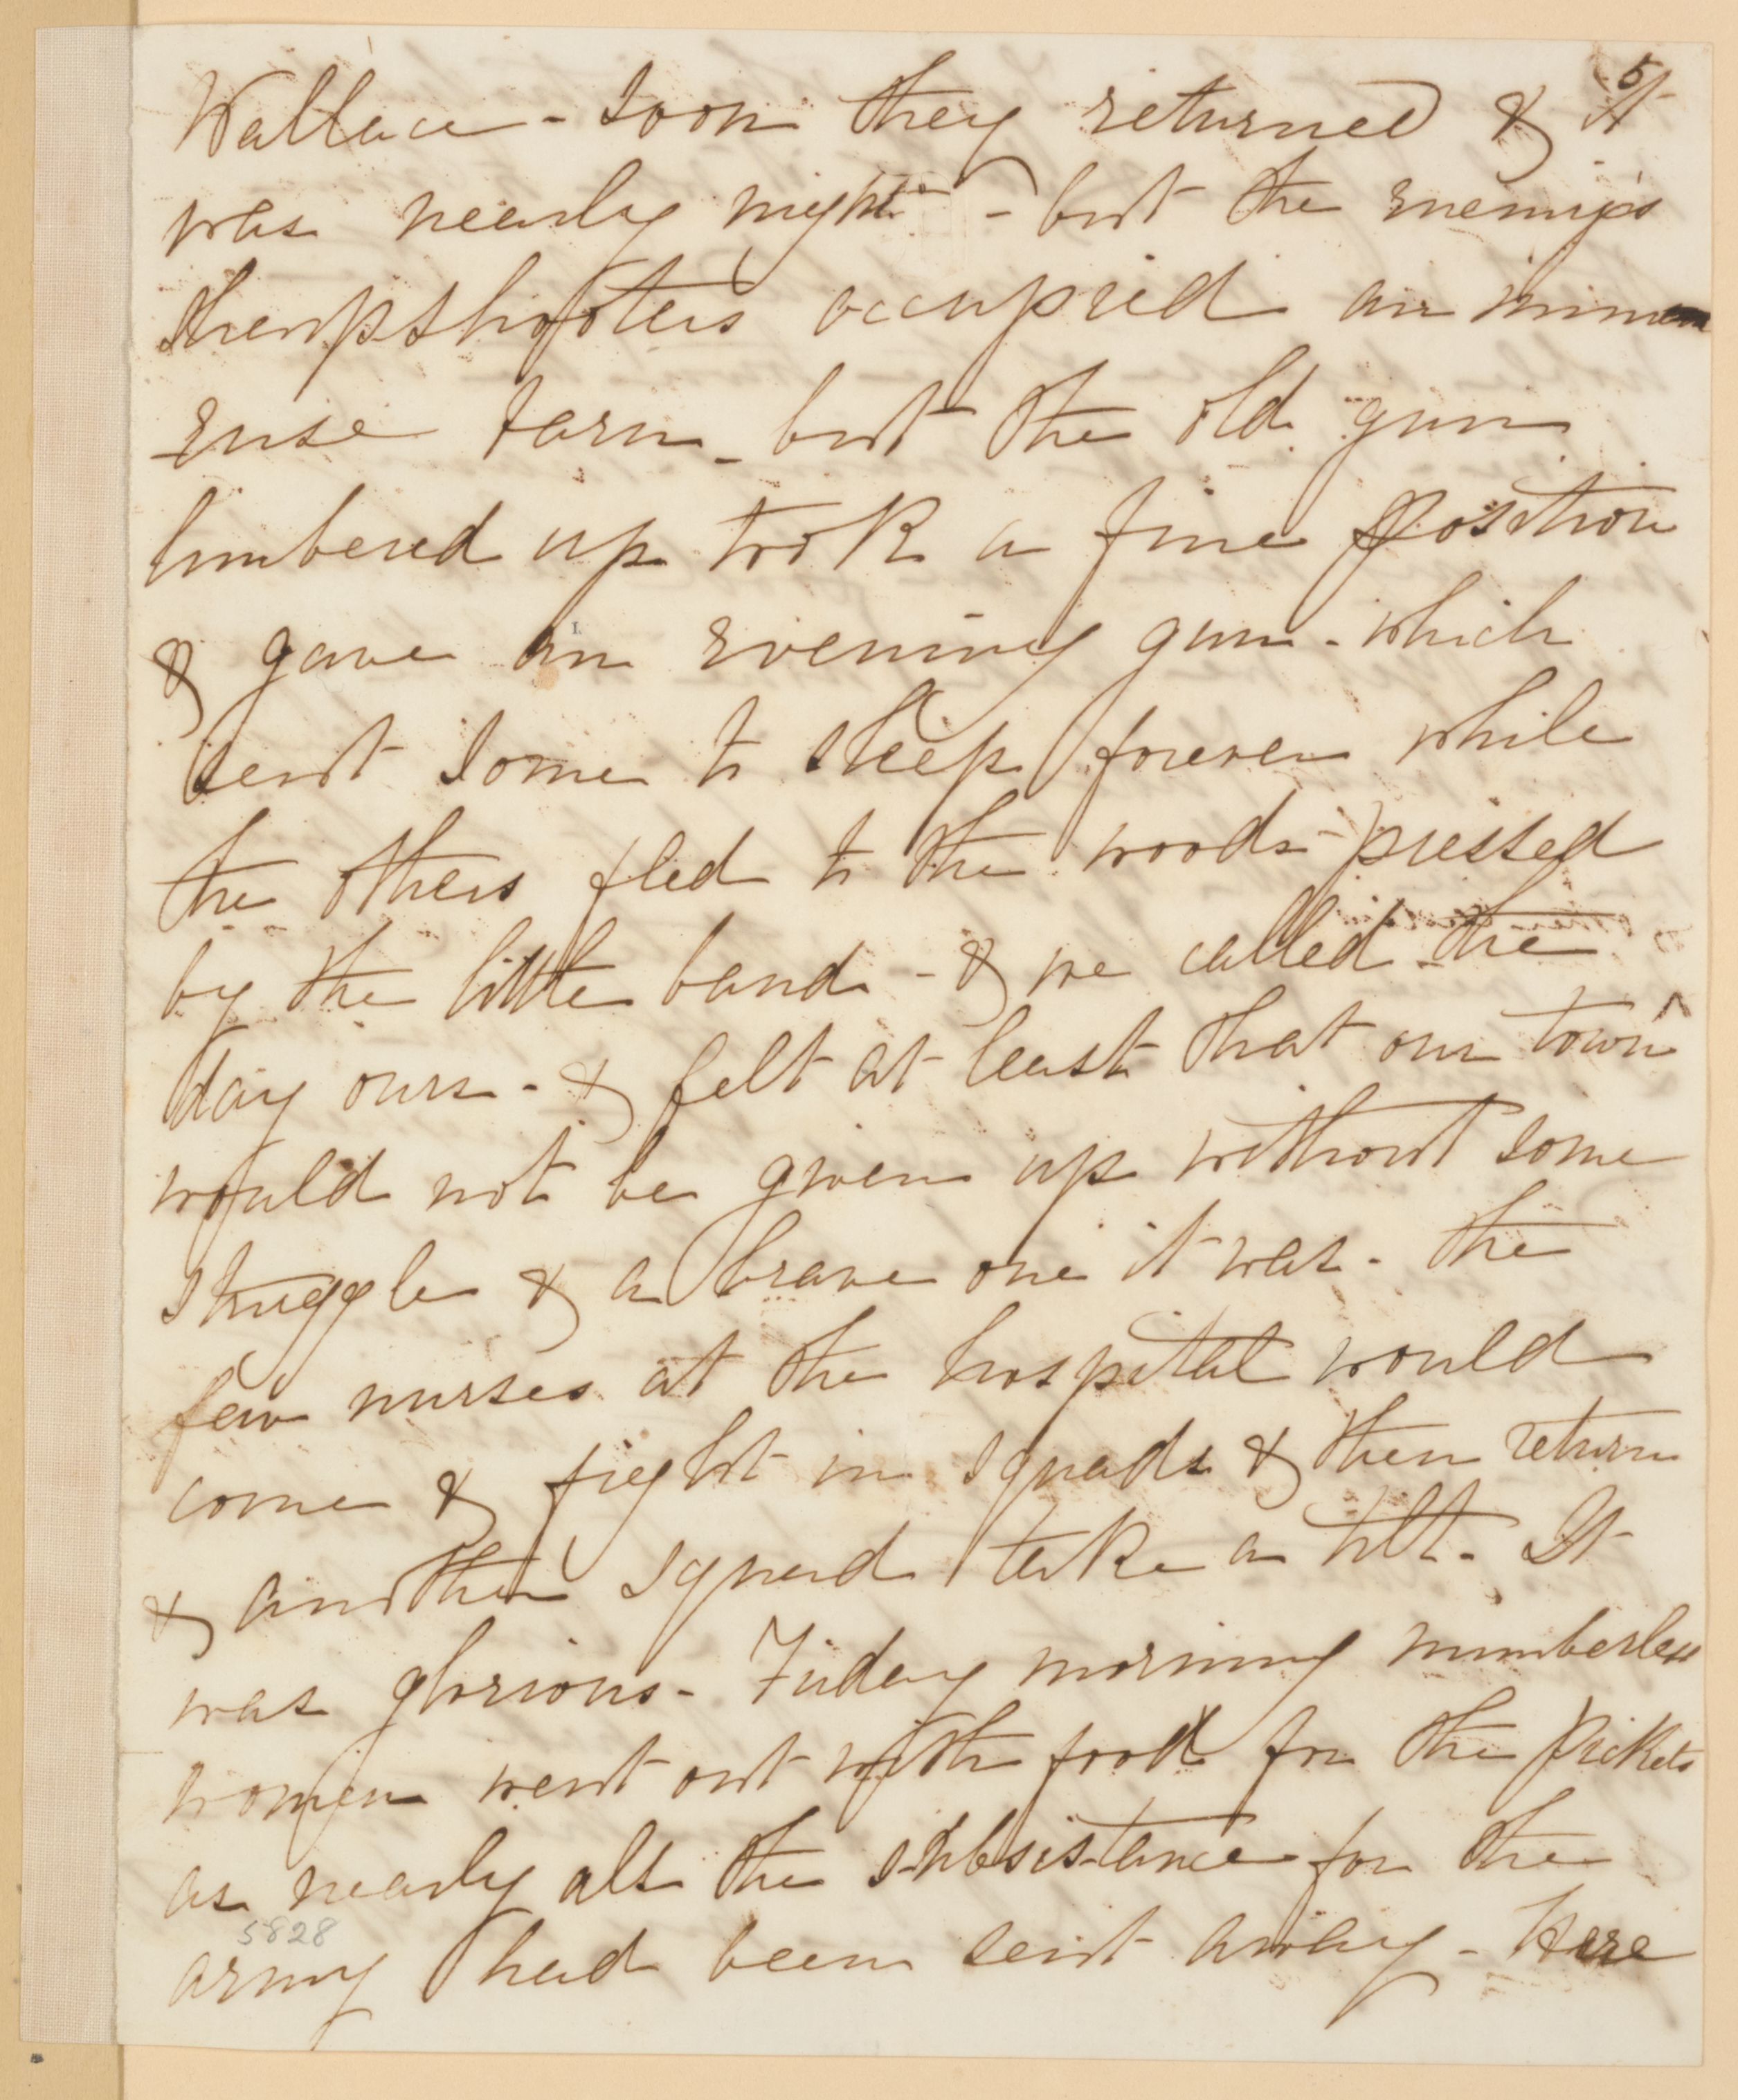 5
Wallace - soon they returned & it
was nearly night - but the enemy's
sharpshooters occupied an imm
ense barn - but the old gun
limbered up took a fine position
& gave an evening gun - which
sent some to sleep forever while
the others fled to the woods - pressed
by the little band - & we called the
day ours - & felt at least that our town
would not be given up without some
struggle & a brave one it was - the
few nurses at the hospital would
come & fight in squads & then return
& another squad take a tilt. It
was glorious - Friday morning numberless
women went out with food for the Pickets
as nearly all the subsistance for the
5828
army had been sent away - Here